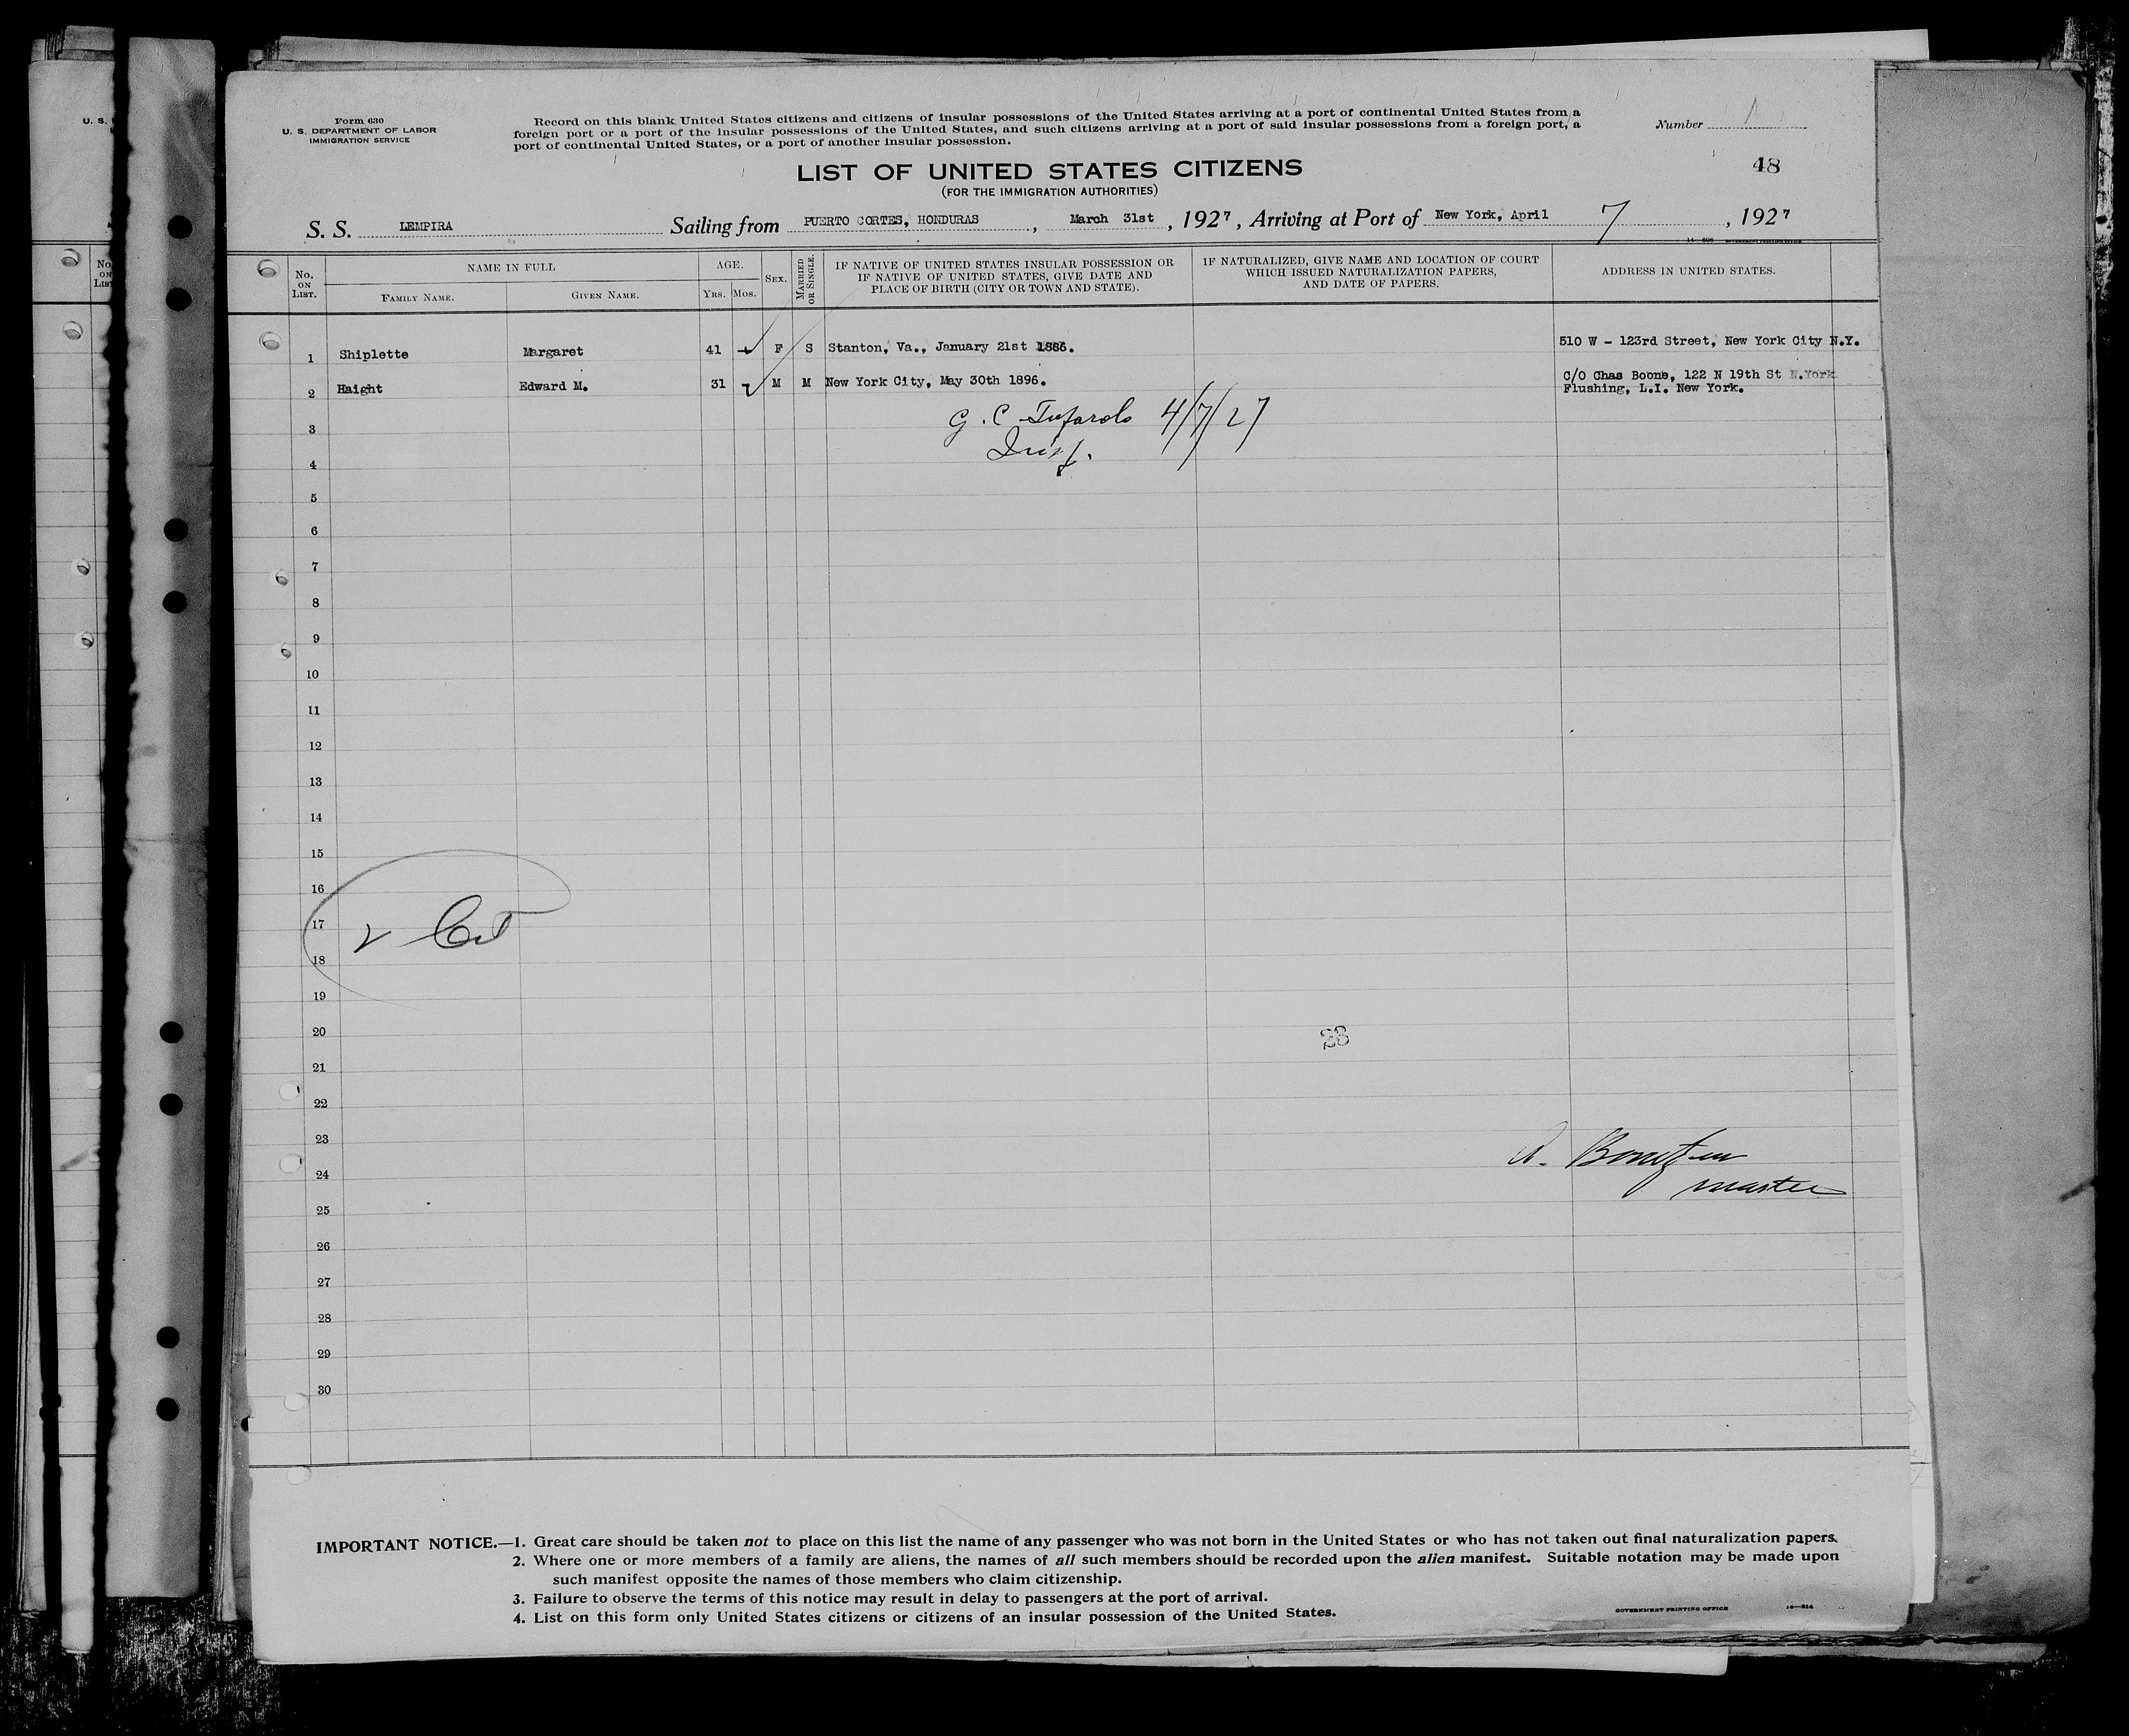 Form 630
U. S. DEPARTMENT OF LABOR
IMMIGRATION SERVICE
Record on this blank United States citizens and citizens of insular possessions of the United States arriving at a port of continental United States from a
foreign port or a port of the insular possessions of the United States, and such citizens arriving at a port of said insular possessions from a foreign port, a
port of continental United States, or a port of another insular possession.
Number 1
48
LIST OF UNITED STATES CITIZENS
(FOR THE IMMIGRATION AUTHORITIES)
S. S. LEMPIRA Sailing from PUERTO CORTES, HONDURAS, March 31st, 1927, Arriving at Port of New York, April 7, 1927
No. ON LIST. NAME IN FULL FAMILY NAME. GIVEN NAME. AGE. YRS. MOS. SEX. MARRIED OR SINGLE. IF NATIVE OF UNITED STATES INSULAR POSSESSION OR IF NATIVE OF UNITED STATES, GIVE DATE AND PLACE OF BIRTH (CITY OR TOWN AND STATE). IF NATURALIZED, GIVE NAME AND LOCATION OF COURT WHICH ISSUED NATURALIZATION PAPERS, AND DATE OF PAPERS. ADDRESS IN UNITED STATES.
1 Shiplette Margaret 41 F S Stanton, Va., January 21st 1886. 510 W - 123rd Street, New York City N.Y.
2 Haight Edward M. 31 M M New York City, May 30th 1896. C/O Chas Boone, 122 N 19th St N.York
Flushing, L.I. New York.
3 G. C. 4/7/27
4 Insp.
5
6
7
8
9
10
11
12
13
14
15
16
17 2 Cit
18
19
20 28
21
22
23
24 master
25
26
27
28
29
30
IMPORTANT NOTICE.—1. Great care should be taken not to place on this list the name of any passenger who was not born in the United States or who has not taken out final naturalization papers.
2. Where one or more members of a family are aliens, the names of all such members should be recorded upon the alien manifest. Suitable notation may be made upon
such manifest opposite the names of those members who claim citizenship.
3. Failure to observe the terms of this notice may result in delay to passengers at the port of arrival.
4. List on this form only United States citizens or citizens of an insular possession of the United States.
GOVERNMENT PRINTING OFFICE